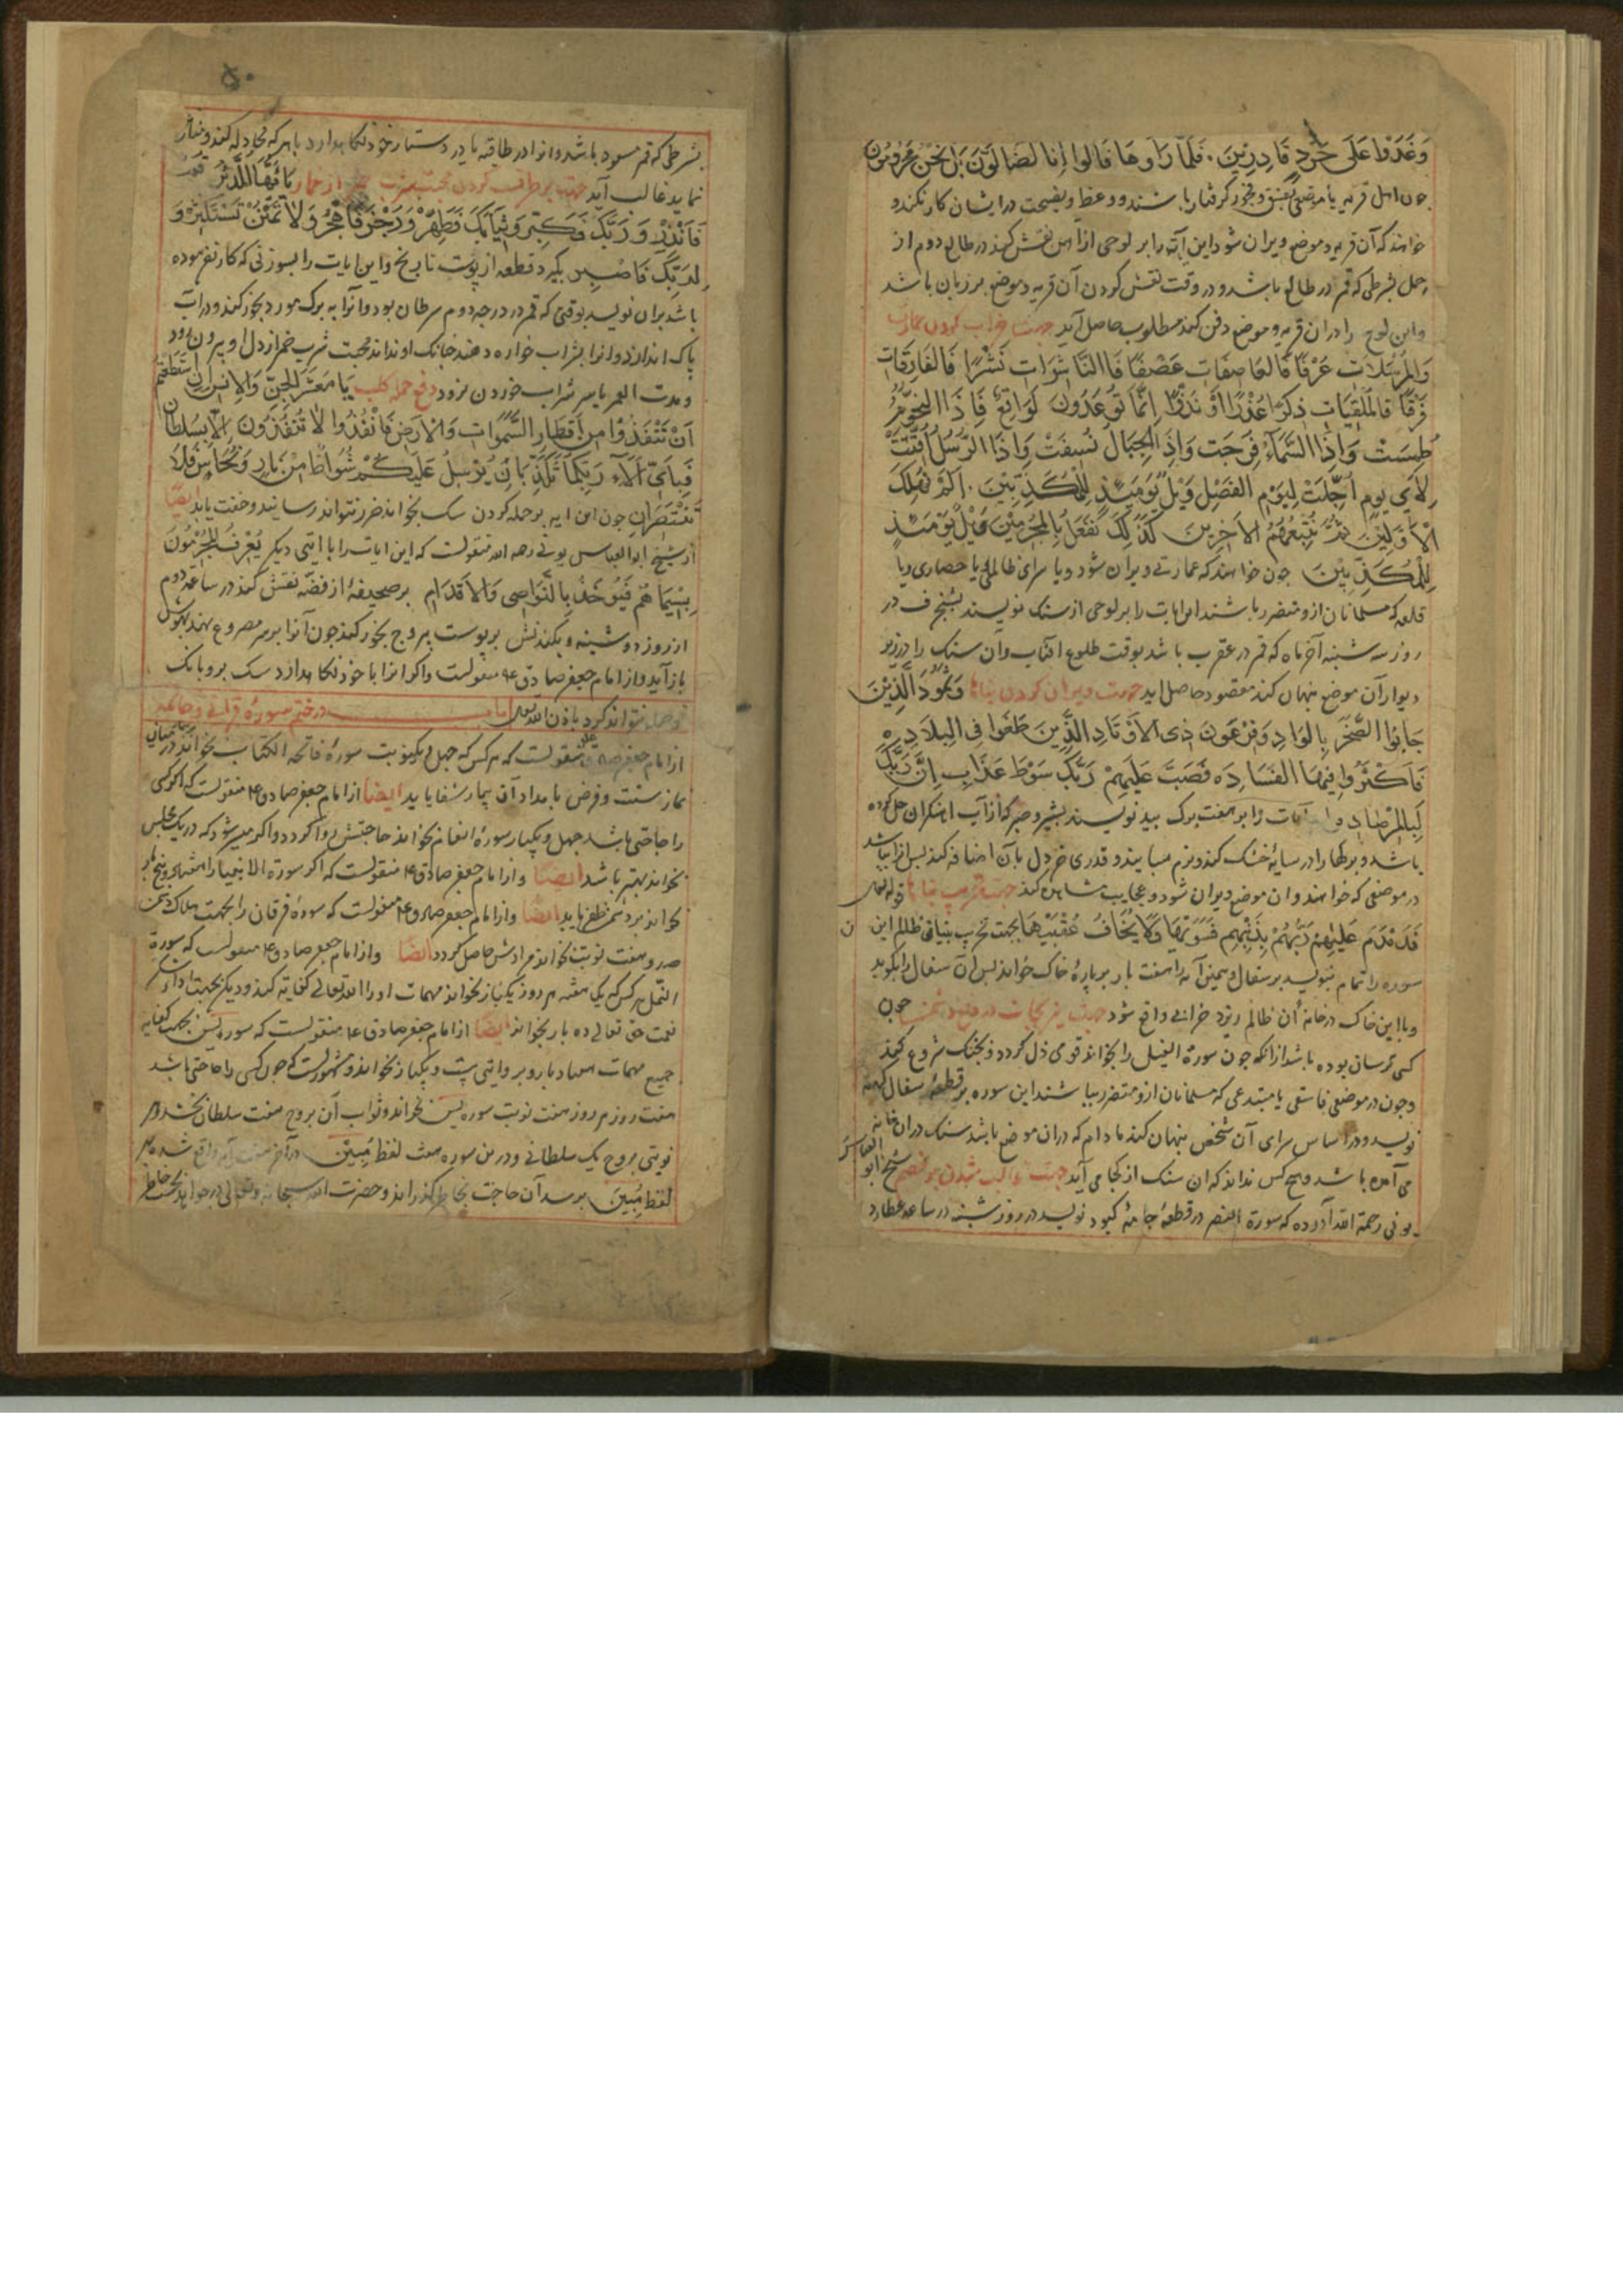 وَغَدَوْا عَلَى حَرْدٍ قَادِرِينَ فَلَمَّا رَاَوهَا قَالوا اِنا لَضَالّونَ بَل نَحْنُ مَحْرُومُونَ
چون اهل قریه یا موضعی بفسق و فجور گرفتار باشند و وعظ و نصیحت در ایشان کار نکند و
خواهند که آن قریه و موضع ویران شود این آیه را بر لوحی از آهن نقش کنند در طالع دوم از
حمل بشرطی که قمر در طالع باشد و در وقت نقش کردن آن قریه و موضع بر زبان باشد
واین لوح را در ان قریه و موضع دفن کند مطلوب حاصل آید جهت خراب کردن عمارت
وَالمُرْسَلَات عُرْفًا فَالعَاصِفَات عَصْفًا فَاالنَّاشِرَات نَشْرًا فَالفَارِقَات
فَرْقًا فَالمُلْقِيَات ذِكْرًا عُذْرًا اَوْ نُذْرًا اِنَّمَا تُوعَدُونَ لَوَاقِعٌ فَاِذَا النُّجُومُ
طُمِسَتْ وَاِذَا السَّمَآءُ فُرِجَت وَاِذَ الجِبَال نُسِفَتْ وَاِذَا الرُّسُلُ اُقِّتَتْ
لِاَيّ يوم اُجِّلَتْ لِيَوْم الفَصْلِ وَيْلٌ يَوْمَئِذٍ لِلْمُكَذِّبِيْنَ اَلَمْ نُهْلِكَ
الْاَوَّلِيْنَ ثُمَّ نُتْبِعُهُمُ الاخِرِينَ كَذَلِكَ نَفْعَلُ بِالمُجْرِمِيْنَ وَيْلٌ يَوْمَئِذٍ
لِلْمُكَذِّبِيْنَ چون خواهند که عمارتی ویران شود و یا سرای ظالمی یا حصاری ویا
قلعه که مسلمانان ازو متضرر باشند این ایات را بر لوحی از سنک نویسند بشنجرف در
روز سه شنبه آخر ماه که قمر در عقرب باشد بوقت طلوع افتاب وان سنک را در زیر
دیوار آن موضع پنهان کند مقصود حاصل اید جهت ویران کردن بناها وَثَمُودَ الَّذِيْنَ
جَابُوا الصَّخْرَ بِالوَادِ وَفِرْعَونَ ذِى الاَوْتَادِ الَّذِينَ طَغَوا فِى البِلَادِ
فَاَكْثَرُوا فِيْهَا الفَسَادَ فَصَبَّ عَلَيْهِمْ رَبُّكَ سَوْطَ عَذَابٍ اِنَّ رَبَّكَ
لَبِالمِرْصَادِ آیات را بر هفت برک بید نویسند
باشد و برکها را در سایه خشک کند و نرم بساید و قدری خردل بآن اضافه کند پس انرا بپاشد
در موضعی که خواهند وان موضع ویران شود و عجایب مشاهده کند جهت تخریب بناها قوله تعالی
فَدَمْدَمَ عَلَيْهِمْ رَبُّهُمْ بِذَنْبِهِمْ فَسَوّىٰهَا وَلَا يَخَافُ عُقْبٰيهَا بجهت تخریب بنیاد ظالم این
سوره را تمام بنویسد بر سفال و همین آیه را هفت بار بر پارۀ خاک خواند پس آن سفال را بکوبد
وبا این خاک در خانۀ آن ظالم ریزد خرابی واقع شود
کسی ترسان بوده باشد از انکه چون سورۀ الفیل را بخواند قوی دل کردد و بجنک شروع کند
وچون در موضعی فاسقی یا مبتدعی که مسلمانان ازو متضرر باشند این سوره بر قطعۀ سفال کهنه
نویسد و در اساس سرای آن شخص پنهان کند مادام که در ان موضع باشد سنک در ان خانه
می آمده باشد و هیچ کس نداند که ان سنک از کجا می آید جهت غالب شدن بر خصم شیخ ابو العباس
بونی رحمة الله آورده که سورة العصر در قطعۀ جامۀ کبود نویسد در روز شنبه در ساعت عطارد
۵۰
بشرطی که قمر مسعود باشد وانرا در طاقیه یا در دستار خود نکاهدارد با هر که مجادله کند
نماید غالب آید يَااَيُّهَا المُدَّثِّرُ قُمْ
فَاَنْذِرْ وَرَبَّكَ فَكَبِّرْ وَثِيَابَكَ فَطَهِّرْ وَرُجْزَ فَاهْجُرْ وَلَا تَمْنُنْ تَسْتَكْثِرْ وَ
لِرَبِّكَ فَاصْبِر بکیرد قطعه از پوست و این ایات را بسوزنی که کار نفرموده
باشد بران نویسد بوقتی که قمر در درجه دوم سرطان بود وانرا به برک مورد بخور کند و در اب
پاک اندازد وانرا بشراب خواره دهند چنانک او نداند محبت شرب خمر از دل او بیرون رود
ومدت العمر باسر شراب خوردن نرود دفع حمله کلب يَا مَعْشَرَ الجِنِّ وَالاِنْسِ اِنِ اسْتَطَعْتُمْ
اَنْ تَنْفُذُوْا مِن اَقْطَارِ السَّمٰوَات وَالاَرْضِ فَانْفُذُوا لَا تَنْفُذُونَ اِلَّا بِسُلْطَانٍ
فَبِاَيِّ اٰلَاۤءِ رَبِّكُمَا تُكَذِّبَانِ يُرْسَلُ عَلَيْكُمَا شُوَاظٌ مِنْ نَارٍ وَنُحَاسٌ فَلَا
تَنْتَصِرَانِ چون این ایه بر حمله کردن سک بخواند ضرر نتواند رسانید و خفت یابد ایضا
از شیخ ابو العباس بونی رحمه الله منقولست که این ایات را با ایتی دیکر يُعْرَفُ المُجْرِمُوْنَ
بِسِيْمَاهُم فَيُؤخَذُ بِالنَّوَاصِى وَالاَقْدَامِ بر صحیفۀ از فضّه نقش کند در ساعت دوم
از روز دوشنبه و بخور کند چون آنرا بر سر مصروع نهند بهوش
باز آید واز امام جعفر صادق ع منقولست واکر انرا با خود نکاهدارد سک برو بانک
و حمله نتواند کرد باذن الله تعالی در ختم سورۀ قرآنی
از امام جعفر صادق منقولست که هر کس که چهل و یکنوبت سورۀ فاتحه الکتاب بخواند در میان
نماز سنت و فرض بامداد آن بیمار شفا یابد ایضا از امام جعفر صادق ع منقولست که اکر کسی
را حاجتی باشد چهل و یکبار سورۀ انعام بخواند حاجتش روا کردد واکر میسر شود که در یک مجلس
بخواند بهتر باشد ایضا و از امام جعفر صادق ع منقولست که اکر سورة الانبیا را
بخواند بر دشمن ظفر یابد ایضا واز امام جعفر صادق ع منقولست که سورۀ فرقان را بجهت هلاک دشمن
صد و هفت نوبت بخواند مرادش حاصل کردد ایضا واز امام جعفر صادق ع منقولست که سورة
النمل هر کس که یک هفته هر روز یکبار بخواند مهمات او را الله تعالی کفایة کند و دیکر بجهت اداء شکر
نعمت حق تعالی ده بار بخواند ایضا از امام جعفر صادق ع منقولست که سوره یس بجهت کفایه
جمیع مهمات و بروایتی بیست و یکبار بخواند و مشهورست که چون کسی را حاجتی باشد
هفت روز هر روز هفت نوبت سوره یس بخواند و ثواب آن بروح هفت سلطان بخشد و هر
نوبتی بروح یک سلطانی و درین سوره هفت لفظ مُبِيْن در آخر هفت آیه واقع شده بهر
لفظ مُبِيْن برسد آن حاجت بخاطر کذراند و حضرت الله سبحانه وتعالی